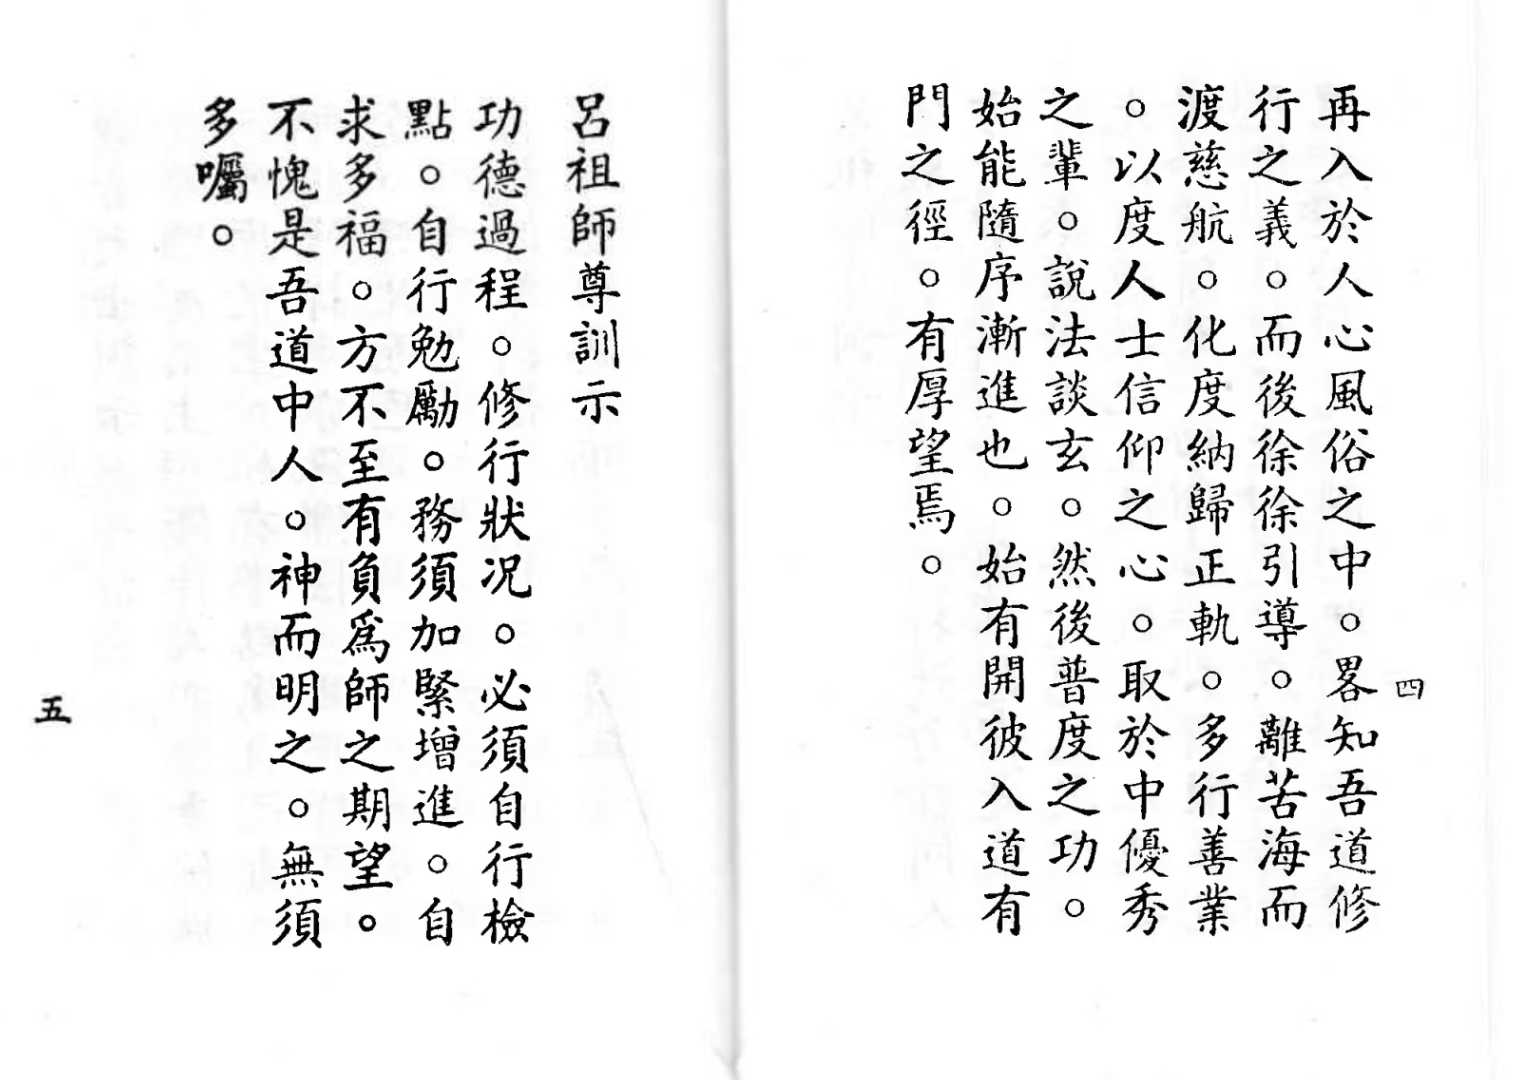 再入於人心風俗之中。畧知吾道修
行之義。而後徐徐引導。離苦海而
渡慈航。化度納歸正軌。多行善業
。以度人士信仰之心。取於中優秀
之輩。說法談玄。然後普度之功。
始能隨序漸進也。始有開彼入道有
門之徑。有厚望焉。
四
呂祖師尊訓示
功德過程。修行狀況。必須自行檢
點。自行勉勵。務須加緊增進。自
求多福。方不至有負爲師之期望。
不愧是吾道中人。神而明之。無須
多囑。
五